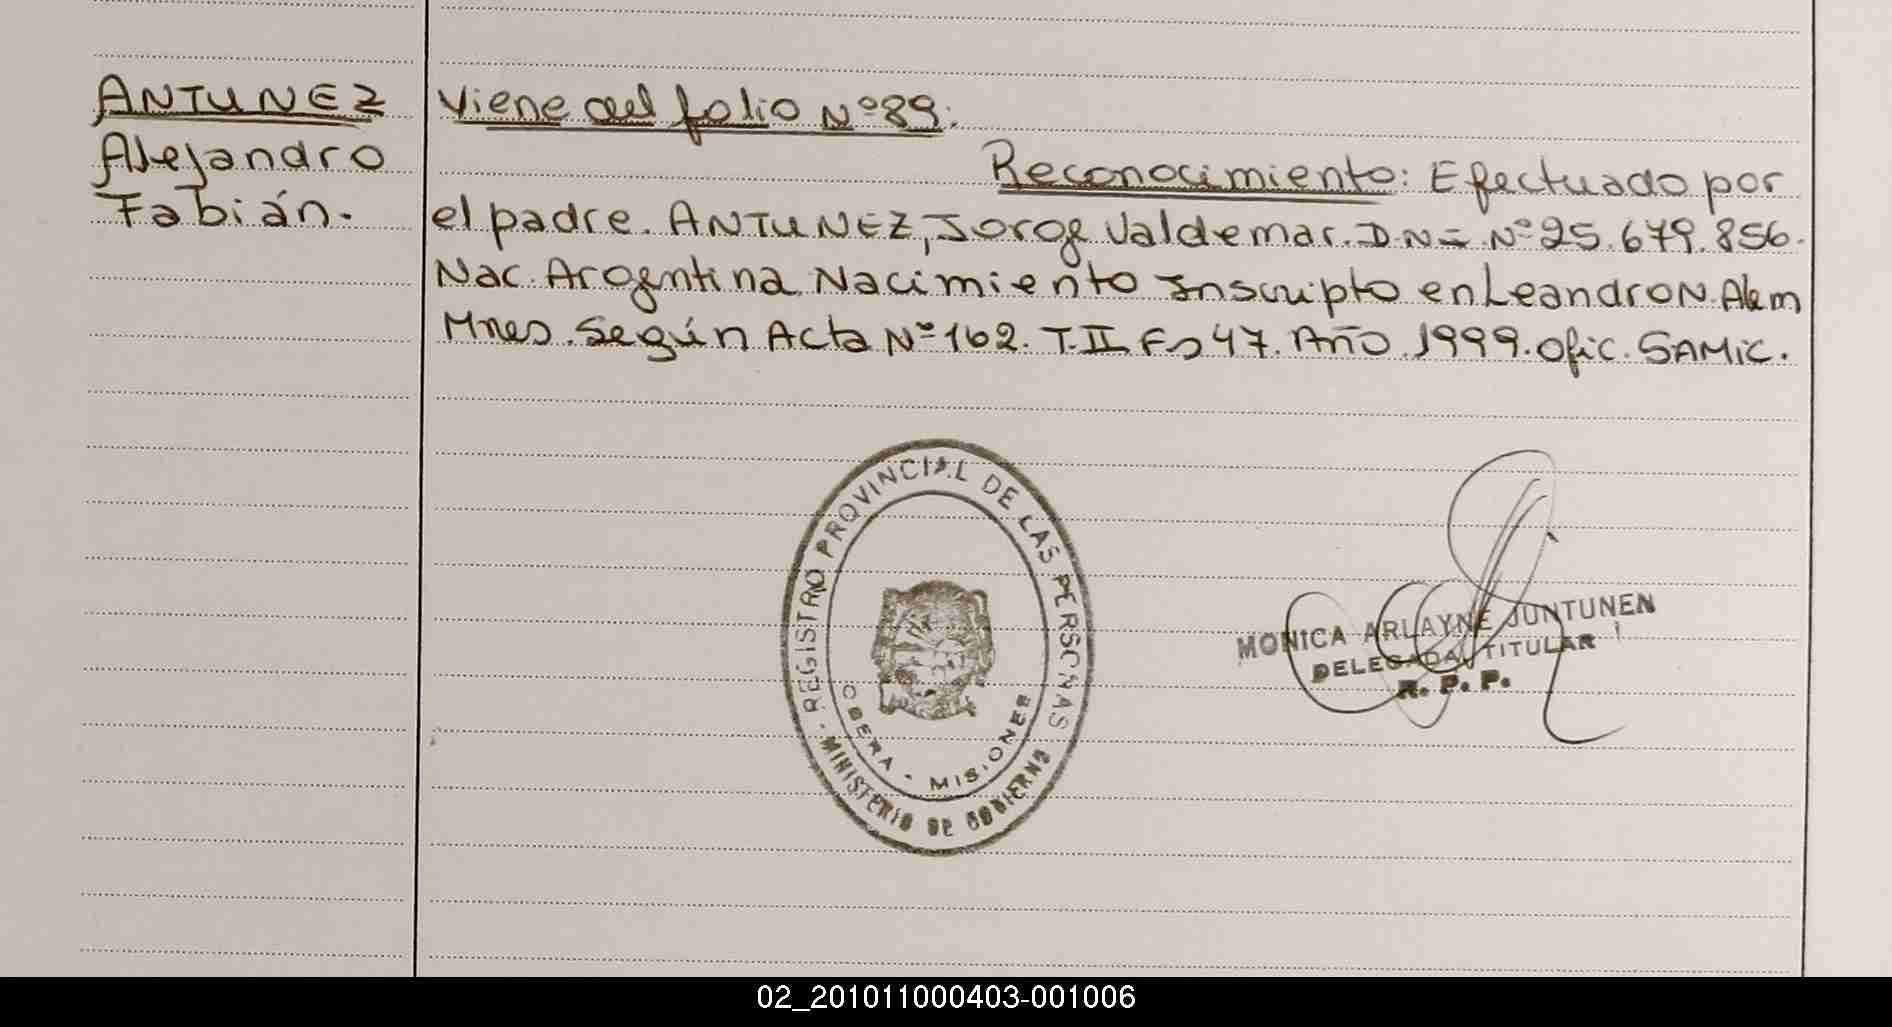 ANTUNEZ
Alejandro
Fabián.
Viene del folio Nº 89.
Reconocimiento: Efectuado por
el padre. ANTUNEZ, Jorge Valdemar. D.N.I. Nº 25.679.856.
Nac. Argentina. Nacimiento Inscripto en Leandro N. Alem
Mnes. Según Acta Nº 162. T. II. Fº 47. Año 1999. Ofic. SAMIC.
REGISTRO PROVINCIAL DE LAS PERSONAS
OBERA - MISIONES
MINISTERIO DE GOBIERNO
MONICA ARLAYNE JUNTUNEN
DELEGADA TITULAR
R. P. P.
02_201011000403-001006